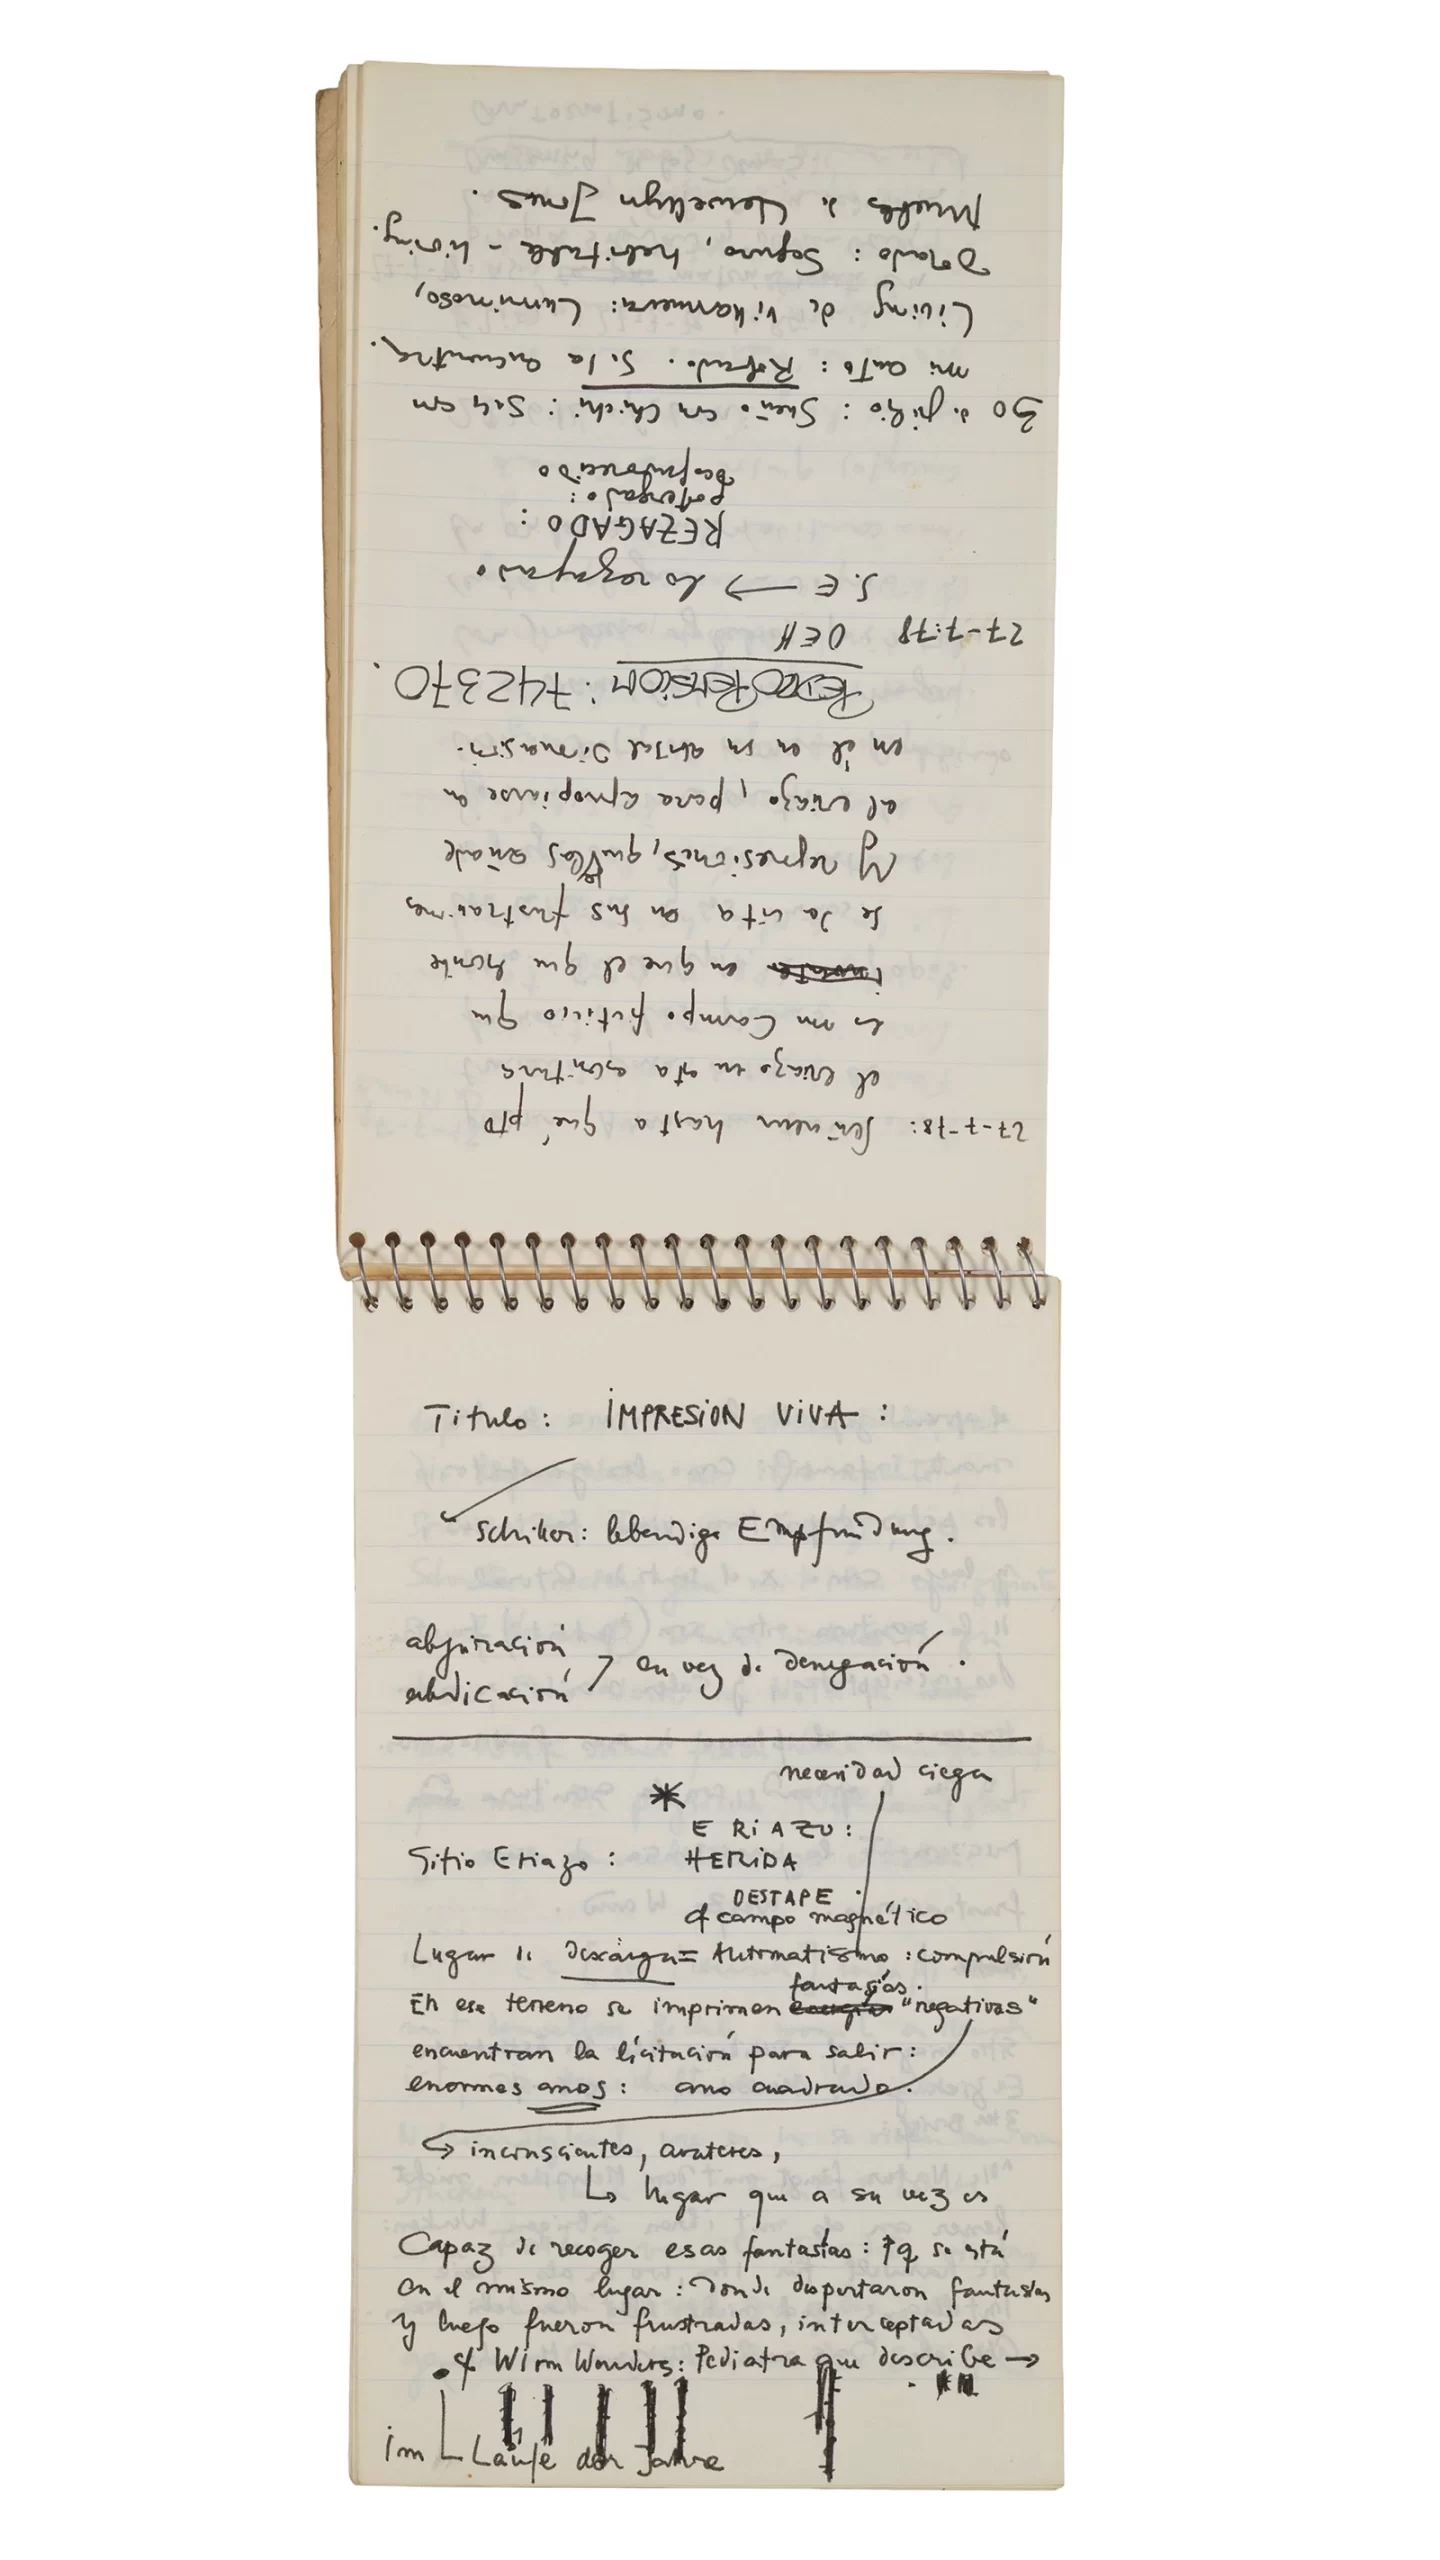 27-7-78: hasta que pto
el eriazo en esta escritura
es un campo ficticio que
en que el que escribe
se da cita en sus frustraciones
y represiones, que las añade
al eriazo, para apropiarse en
en él en su dimensión.
PEDRO PENSION: 742370.
27-7-78 OEH
S.E → lo rezagado.
REZAGADO:
postergado:
desfavorecido
30 de julio: Sueño con Chichi: Salí con
mi auto: Robado. Si la encuentra.
Living de Villanueva: Luminoso,
Dorado: Seguro, habitable - living.
Muebles de Llewellyn Jones.
Titulo: IMPRESION VIVA:
Schiller: lebendige Empfindung.
abjuración
abdicación > en vez de denegación.
necesidad ciega
*
ERIAZO:
Sitio Eriazo: HERIDA
DESTAPE
cf campo magnético
Lugar de descarga = Automatismo: compulsión
fantasías.
En ese terreno se imprimen energía "negativas"
encuentran la licitación para salir:
enormes anos: ano cuadrado.
↪ inconscientes, arateres,
↳ lugar que a su vez es
Capaz de recoger esas fantasías: pq se está
en el mismo lugar: donde despertaron fantasías
y luego fueron frustradas, interceptadas
cf Wim Wenders: Pediatra que describe →
im Laufe der Jahre